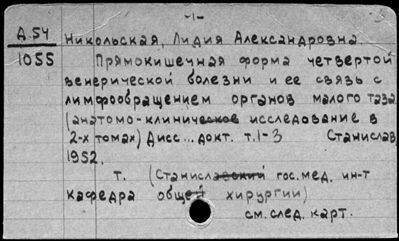 -1-
А.54 Никольская, Лидия Александровна
1055 Прямокишечная форма четвертой
венерической болезни и ее связь с
лимфообращением органов малого таза
(анатомо-клиническое исследование в
2-х томах) Дисс... докт. т.1-3 Станислав,
1952.
т. (Станиславский гос. мед. ин-т
кафедра общей хирургии)
см. след. карт.